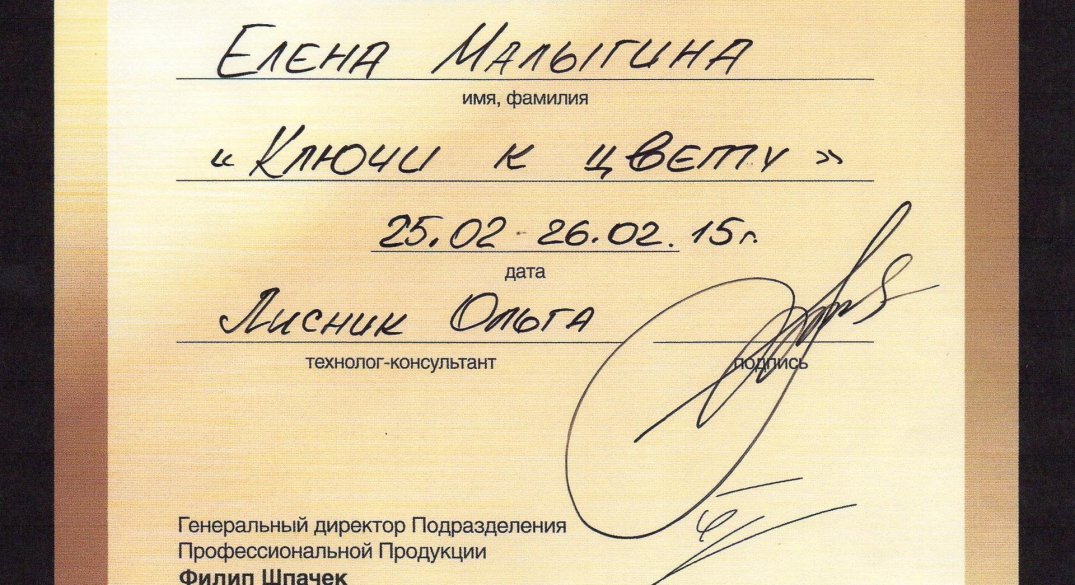 Елена Малыгина
имя, фамилия
«Ключи к цвету»
25.02 - 26.02. 15г.
дата
Лисник Ольга
технолог-консультант
подпись
Генеральный директор Подразделения
Профессиональной Продукции
Филип Шпачек